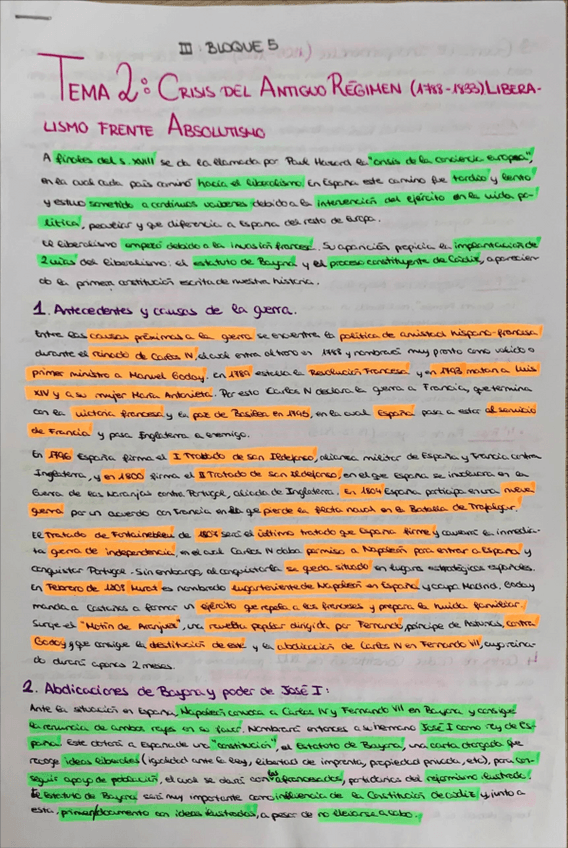 III BLOQUE 5
TEMA 2: CRISIS DEL ANTIGUO RÉGIMEN (1788-1833) LIBERA-
LISMO FRENTE ABSOLUTISMO
A finales del s. XVIII se da la llamada por Paul Hazard la "crisis de la conciencia europea",
en la cual cada país caminó hacia el liberalismo. En España este camino fue tardío y lento
y estuvo sometido a continuos vaivenes debido a la intervención del ejército en la vida po-
lítica, peculiar y que diferencia a España del resto de Europa.
El liberalismo empezó debido a la invasión francesa. Su aparición propicia la implantación de
2 vías del liberalismo: el estatuto de Bayona y el proceso constituyente de Cádiz, aparecien-
do la primera constitución escrita de nuestra historia.
1. Antecedentes y causas de la guerra.
Entre las causas próximas a la guerra se encuentra la política de amistad hispano-francesa
durante el reinado de Carlos IV, el cual entra al trono en 1788 y nombrará muy pronto como valido o
primer ministro a Manuel Godoy. En 1789 estalla la Revolución Francesa y en 1793 matan a Luis
XIV y a su mujer María Antonieta. Por esto Carlos IV declara la guerra a Francia, que termina
con la victoria francesa y la paz de Basilea en 1795, en la cual España pasa a estar al servicio
de Francia y pasa Inglaterra a enemigo.
En 1796 España firma el I Tratado de San Ildefonso, alianza militar de España y Francia contra
Inglaterra, y en 1800 firma el II Tratado de San Ildefonso, en el que España se involucra en la
Guerra de las Naranjas contra Portugal, aliada de Inglaterra. En 1804 España participa en una nueva
guerra por un acuerdo con Francia en la que pierde la flota naval en la Batalla de Trafalgar.
El Tratado de Fontainebleu de 1807 será el último tratado que España firme y causará la inmedia-
ta guerra de independencia, en el cual Carlos IV daba permiso a Napoleón para entrar a España y
conquistar Portugal. Sin embargo, al conquistarla se queda situado en lugares estratégicos españoles.
En Febrero de 1808 Murat es nombrado lugarteniente de Napoleón en España y ocupa Madrid. Godoy
manda a Castaños a formar un ejército que repela a los franceses y prepara la huida familiar.
Surge el "Motín de Aranjuez", una revuelta popular dirigida por Fernando, príncipe de Asturias, contra
Godoy y que consigue la destitución de este y la abdicación de Carlos IV en Fernando VII, cuyo reina-
do durará apenas 2 meses.
2. Abdicaciones de Bayona y poder de José I:
Ante la situación en España, Napoleón convoca a Carlos IV y Fernando VII en Bayona y consigue
la renuncia de ambos reyes en su favor. Nombrará entonces a su hermano José I como rey de Es-
paña. Este dotará a España de una "constitución", el Estatuto de Bayona, una carta otorgada que
recoge ideas liberales (igualdad ante la ley, libertad de imprenta, propiedad privada, etc), para con-
seguir apoyo de población, el cual se dará con los afrancesados, partidarios del reformismo ilustrado.
El Estatuto de Bayona será muy importante como influencia de la Constitución de Cádiz y junto a
esta, primer documento con ideas ilustradas, a pesar de no llevarse a cabo.